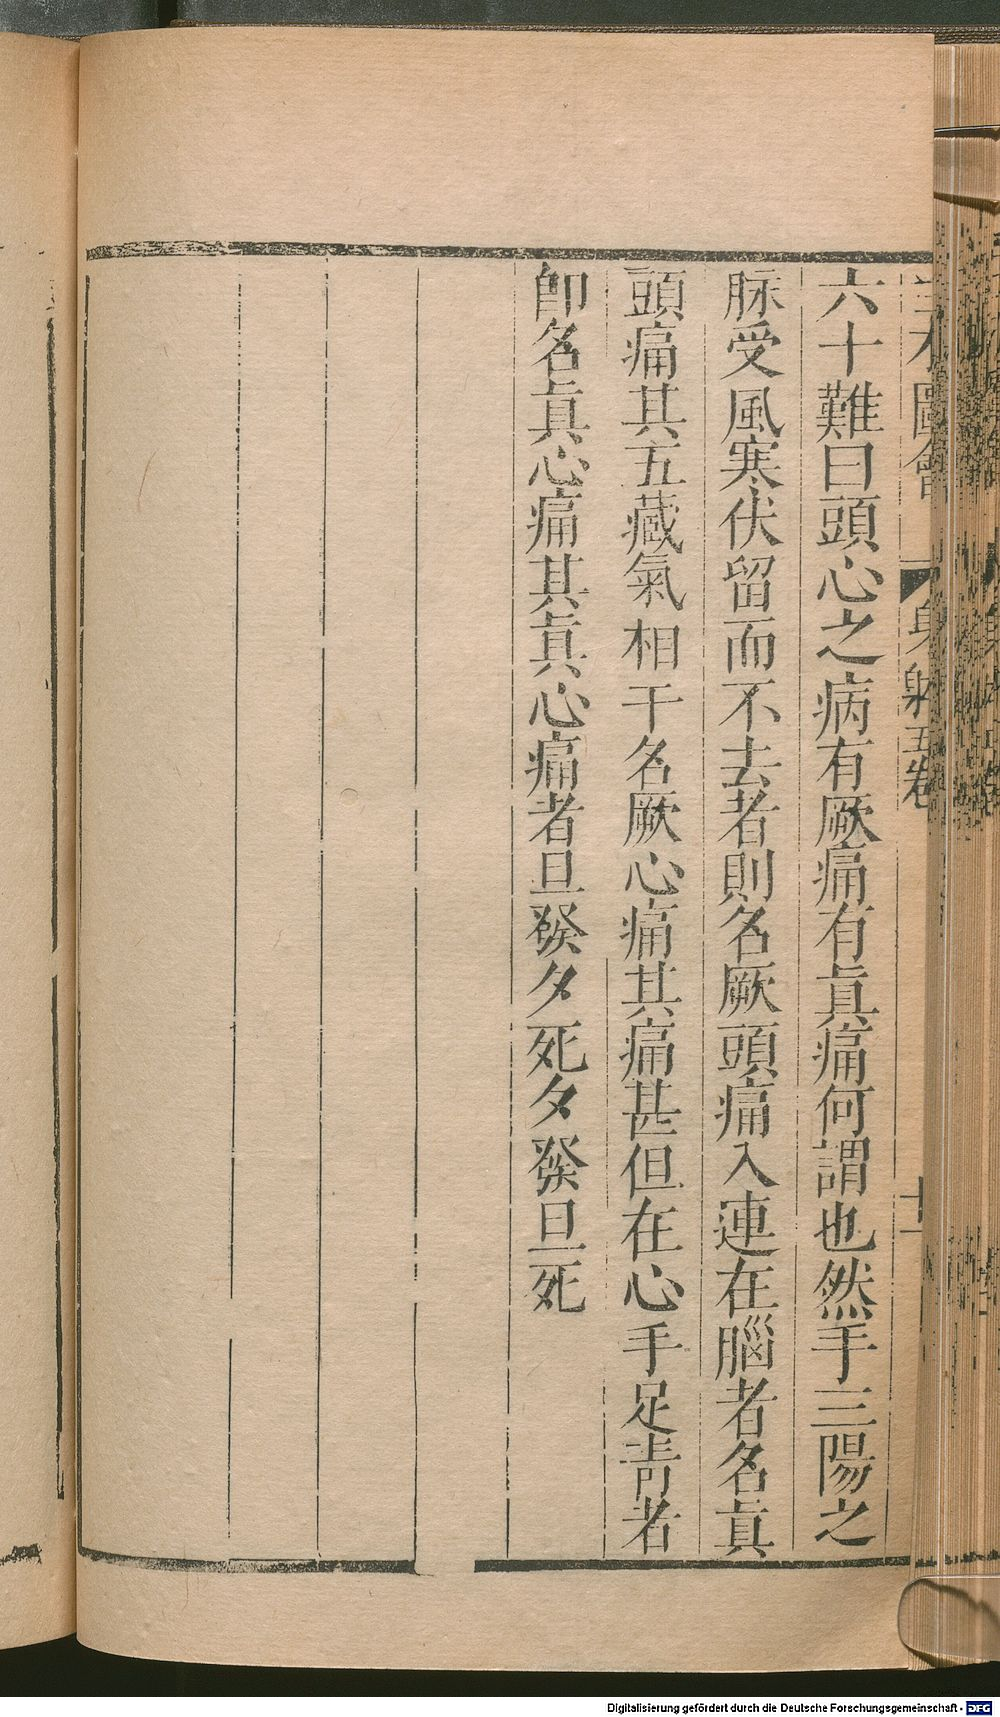 六十難曰頭心之病有厥痛有眞痛何謂也然手三陽之
脉受風寒伏留而不去者則名厥頭痛入連在腦者名眞
頭痛其五藏氣相干名厥心痛其痛甚但在心手足靑者
卽名眞心痛其眞心痛者旦發夕死夕發旦死
圖會
身體五卷
Digitalisierung gefördert durch die Deutsche Forschungsgemeinschaft - DFG